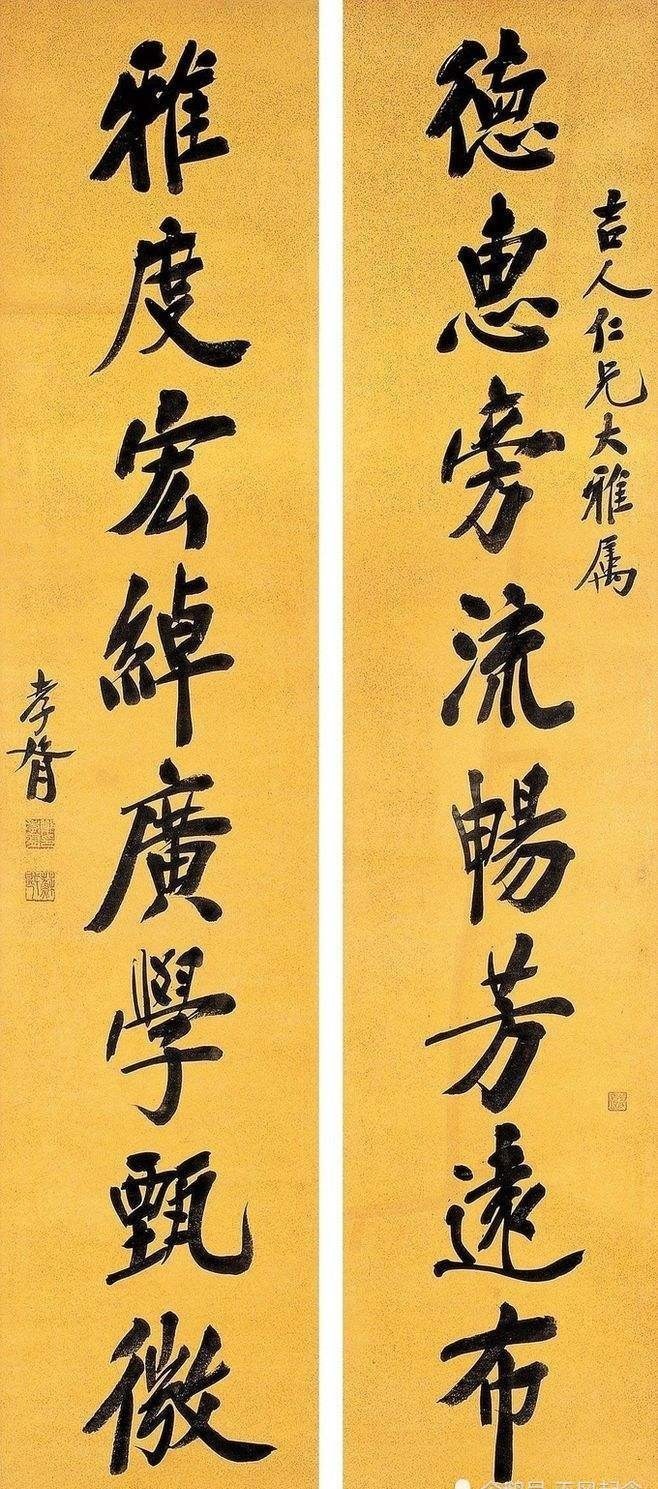 吉人仁兄大雅属
德惠旁流暢芳遠布
雅度宏綽廣學甄微
孝胥